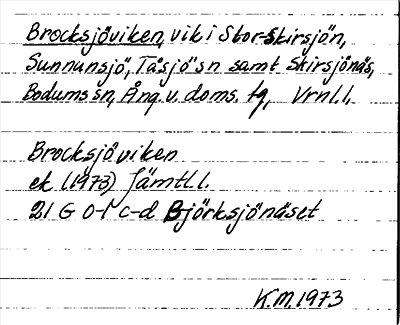 Brocksjöviken, vik i Stor-Skirsjön,
Sunnunsjö, Tåsjö sn samt Skirsjönäs,
Bodums sn, Ång. v. doms. tg, Vrnl. l.
Brocksjöviken
ek (1973) Jämtl. l.
21 G 0-1 c-d Björksjönäset
KM 1973